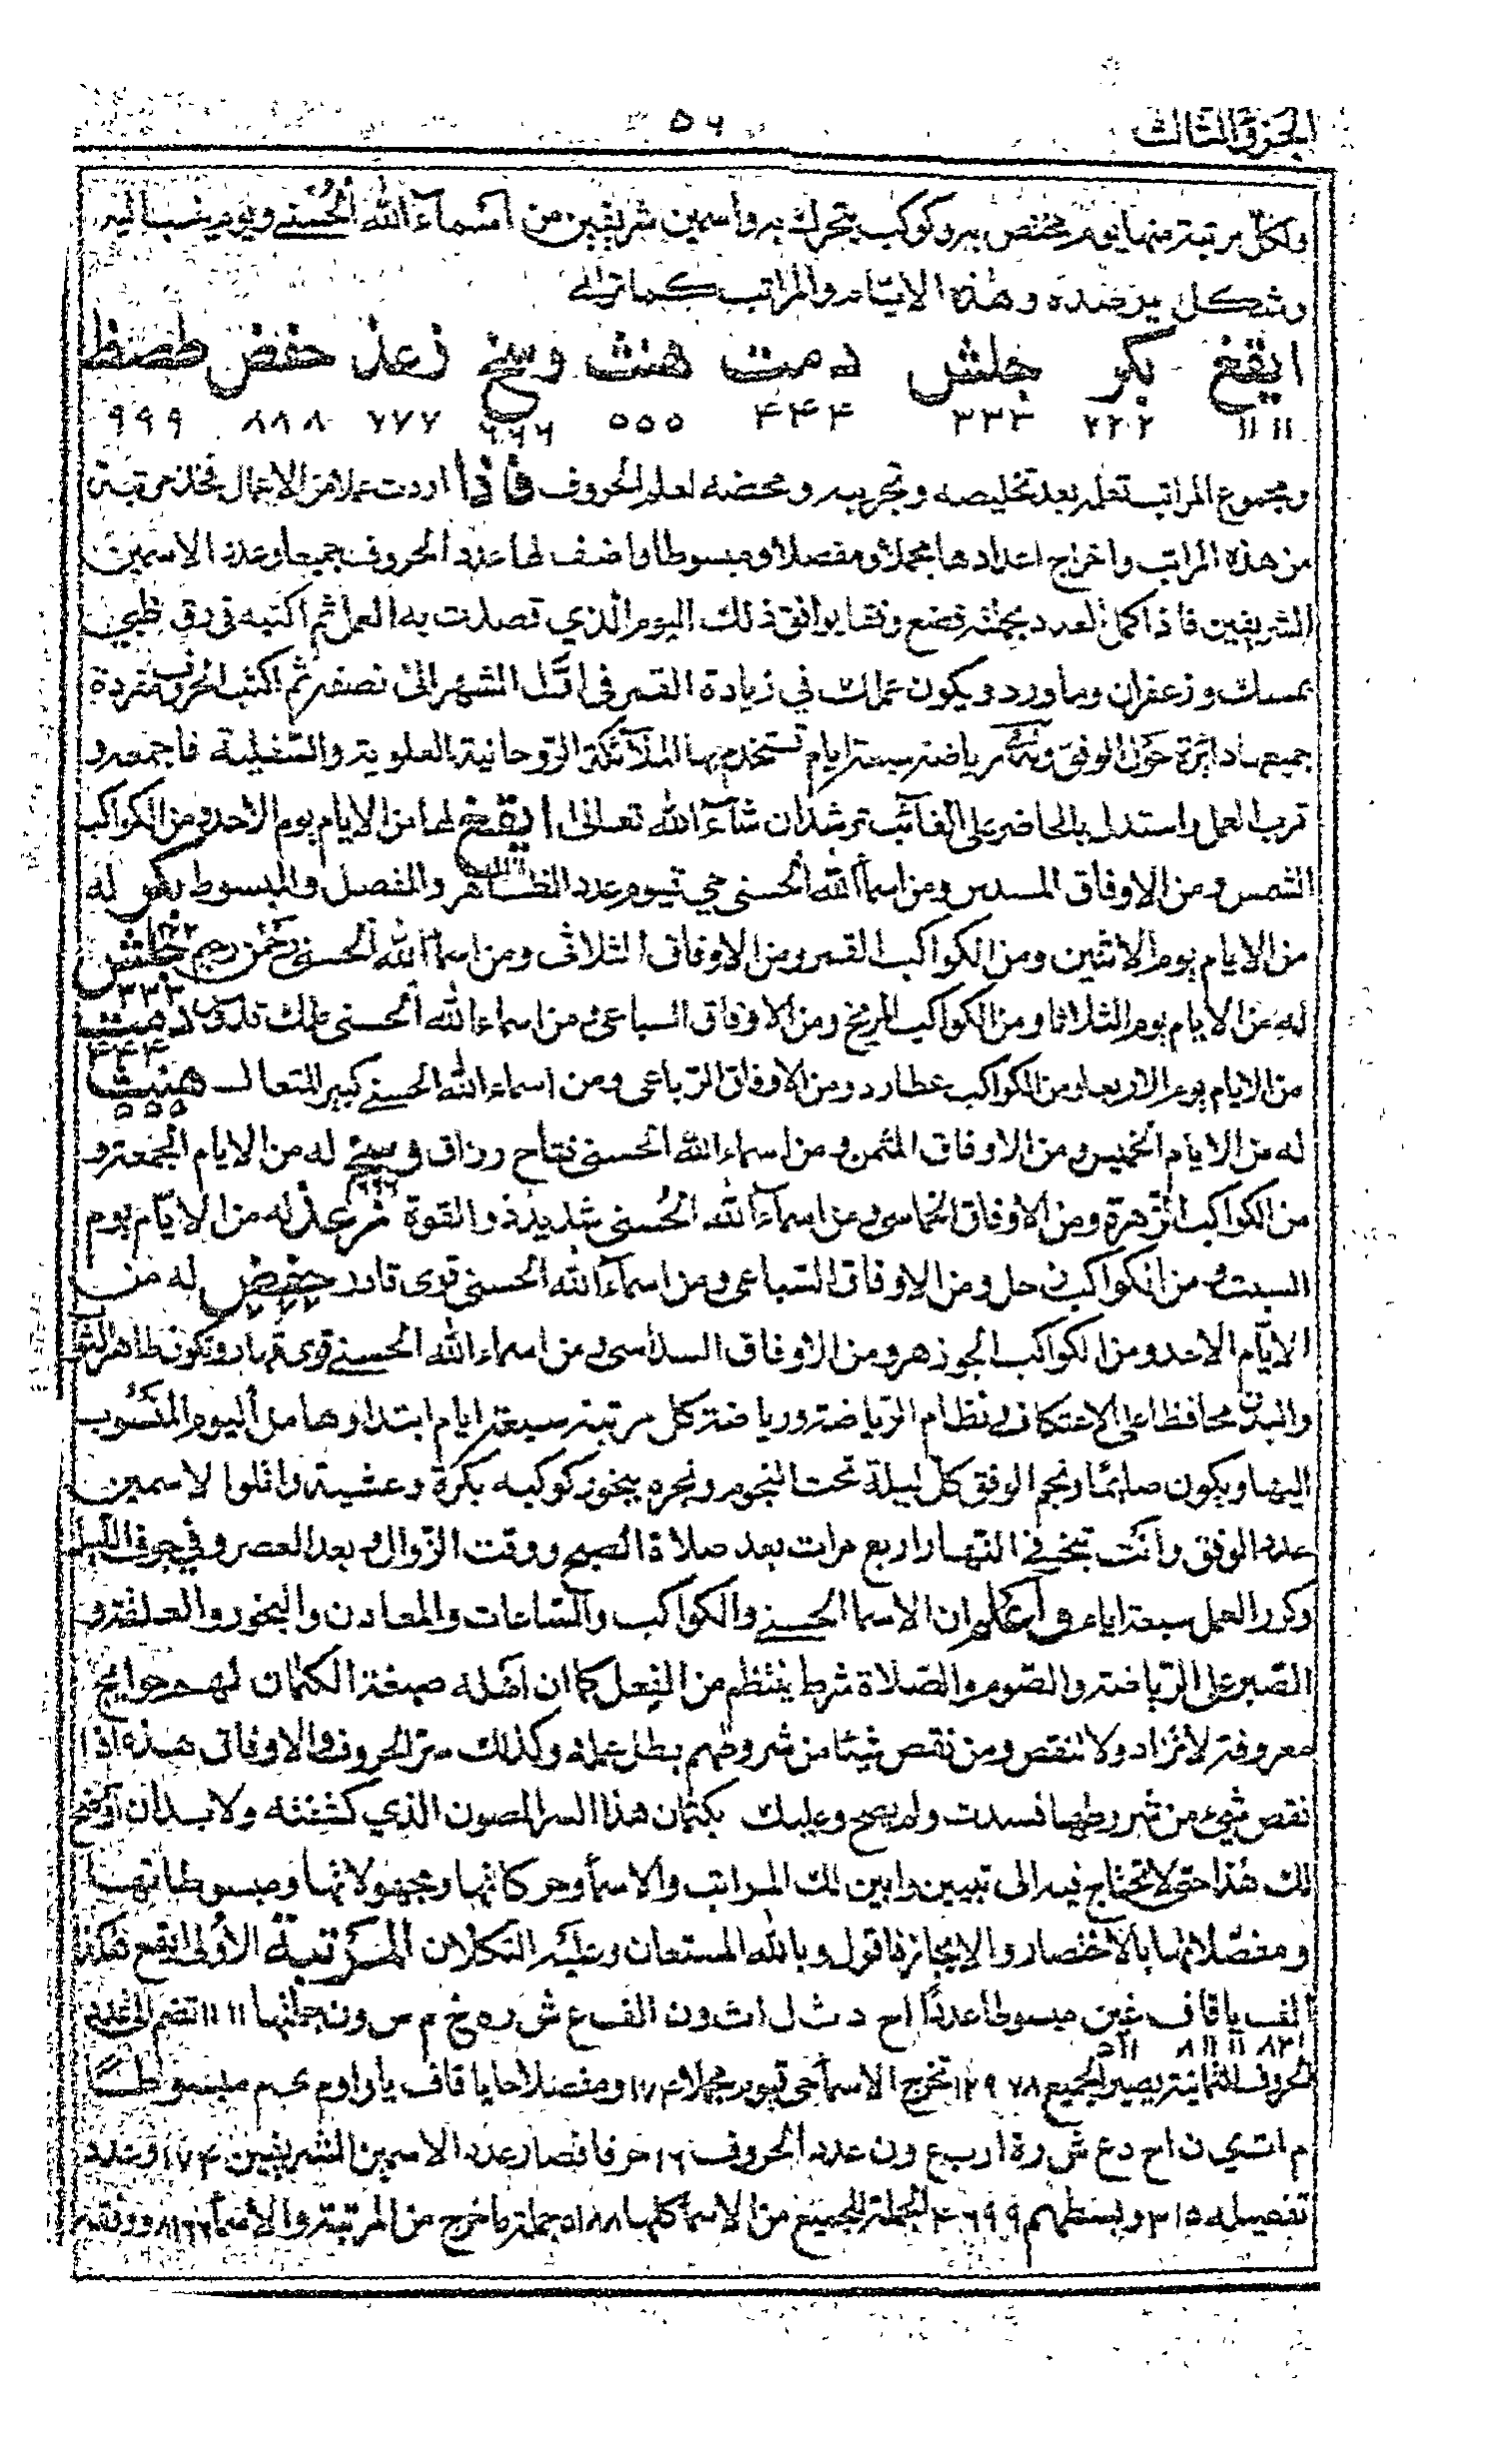 الجزؤ الثالث
٥٦
ولكل مرتبة منها يوم مختص به وكوكب يتحرك به واسمين شريفين من اسمآء الله الحسنى ويوم ينسب اليه
وشكل يرصده وهذه الايام والمراتب كما ترى
ايقغ بكر جلش دمت هنث وسخ زعذ حفض طصظ
١١١١ ٢٢٢ ٣٣٣ ۴۴۴ ٥٥٥ ٦٦٦ ٧٧٧ ٨٨٨ ٩٩٩
ومجموع المراتب تعلم بعد تخليصه وتجريبه ومحضه لعلم الحروف فاذا اردت عملا من الاعمال فخذ مرتبة
من هذه المراتب واخراج اعدادها مجملا ومفصلا ومبسوطا واضف لها عدد الحروف جميعا وعدد الاسمين
الشريفين فاذا كمل العدد بجملته فضع وفقا يوافق ذلك اليوم الذي تصدرت به العمل ثم اكتبه فى رق ظبي
بمسك وزعفران وماورد ويكون عملك في زيادة القمر فى اول الشهر الى نصفه ثم اكتب الحروف مفردة
جميعها دائرة حول الوفق وله رياضة سبعة ايام تستخدم بها الملائكة الروحانية العلوية والسفلية فاجمعه و
قرب العمل واستدل بالحاضر على الغائب ترشد ان شآء الله تعالى ايقغ لها من الايام يوم الاحد ومن الكواكب
١١١١
الشمس ومن الاوفاق المسدس ومن اسمآ الله الحسنى حي قيوم عدد الظاهر والمفصل والمبسوط بكر له
٢٢٢
من الايام يوم الاثنين ومن الكواكب القمر ومن الاوفاق الثلاثى ومن اسمآ الله الحسنى رحمن رحيم جلش
٣٣٣
له من الايام يوم الثلاثا ومن الكواكب المريخ ومن الاوفاق السباعى ومن اسماء الله الحسنى ملك قدوس دمت
۴۴۴
من الايام يوم الاربعا ومن الكواكب عطارد ومن الاوفاق الرباعى ومن اسماء الله الحسنى كبير المتعال هنث
٥٥٥
له من الايام الخميس ومن الاوفاق المثمن ومن اسماء الله الحسنى فتاح رزاق وسخ له من الايام الجمعة و
٦٦٦
من الكواكب الزهرة ومن الاوفاق الخماسى ومن اسمآء الله الحسنى شديد ذو القوة زعذ له من الايام يوم
السبت ومن الكواكب زحل ومن الاوفاق السباعى ومن اسمآء الله الحسنى قوى قادر حفض له من
الايام الاحد ومن الكواكب الجوزهر ومن الاوفاق السداسى ومن اسماء الله الحسنى قوى قهار وتكون طاهر
والبدن محافظا على الاعتكاف ونظام الرياضة ورياضة كل مرتبة سبعة ايام ابتداوها من اليوم المنسوب
اليها ويكون صائما ونجم الوفق كل ليلة تحت النجوم ونجره ببخور كوكبه بكرة وعشية واتلوا لاسمين
عدد الوفق وانت تبخر في النهار اربع مرات بعد صلاة الصبح ووقت الزوال وبعد العصر وفي جوف الليل
وكرر العمل سبعة ايام واعلم ان الاسما الحسنى والكواكب والساعات والمعادن والبخور والعلقة و
الصبر على الرياضة والصوم والصلاة شرط ينتظم من الفعل كما ان اهل صبغة الكتمان لهم حوايج
معروفة لا تزاد ولا تنقص ومن نقص شيئا من شروطهم بطل عمله وكذلك سر الحروف والاوفاق هذه اذا
نقص شيء من شروطها فسدت ولم يصح وعليك بكتمان هذا السر المصون الذي كشفته ولا بد ان اوضح
لك هذا حتى لا تحتاج فيه الى تبيين وابين لك المراتب والاسمآ وحركاتها ومجهولاتها ومبسوطاتها
ومفصلاتها بالاختصار والايجاز فاقول وبالله المستعان وعليه التكلان المرتبة الاولى ايقغ فهكذا
الف يا قاف غين مبسوطا عددا اح د ث ل ا ث و ن الف ع ش ر ه خ م س و ن جملتها ١١١١ تضم الى عدد
الحروف الثمانية يصير الجميع ١٢٩٧٨ تخرج الاسمآ حى قيوم مجملا ١٧۴ ومفصلا حا يا قاف يا واو ميم مبسوطا
م ا ت ي ن ا ح د ع ش ر ة ا ر ب ع و ن عدد الحروف ١٦ حرفا فصار عدد الاسمين الشريفين ١٧۴ وعدد
تفصيله ٣١٥ وبسطهم ۴٦٩٩ الجملة الجميع من الاسمآ كلها ٥١٨٨ جملة ما خرج من المرتبة والاسمآ ١٨١٦٦ ووفقه